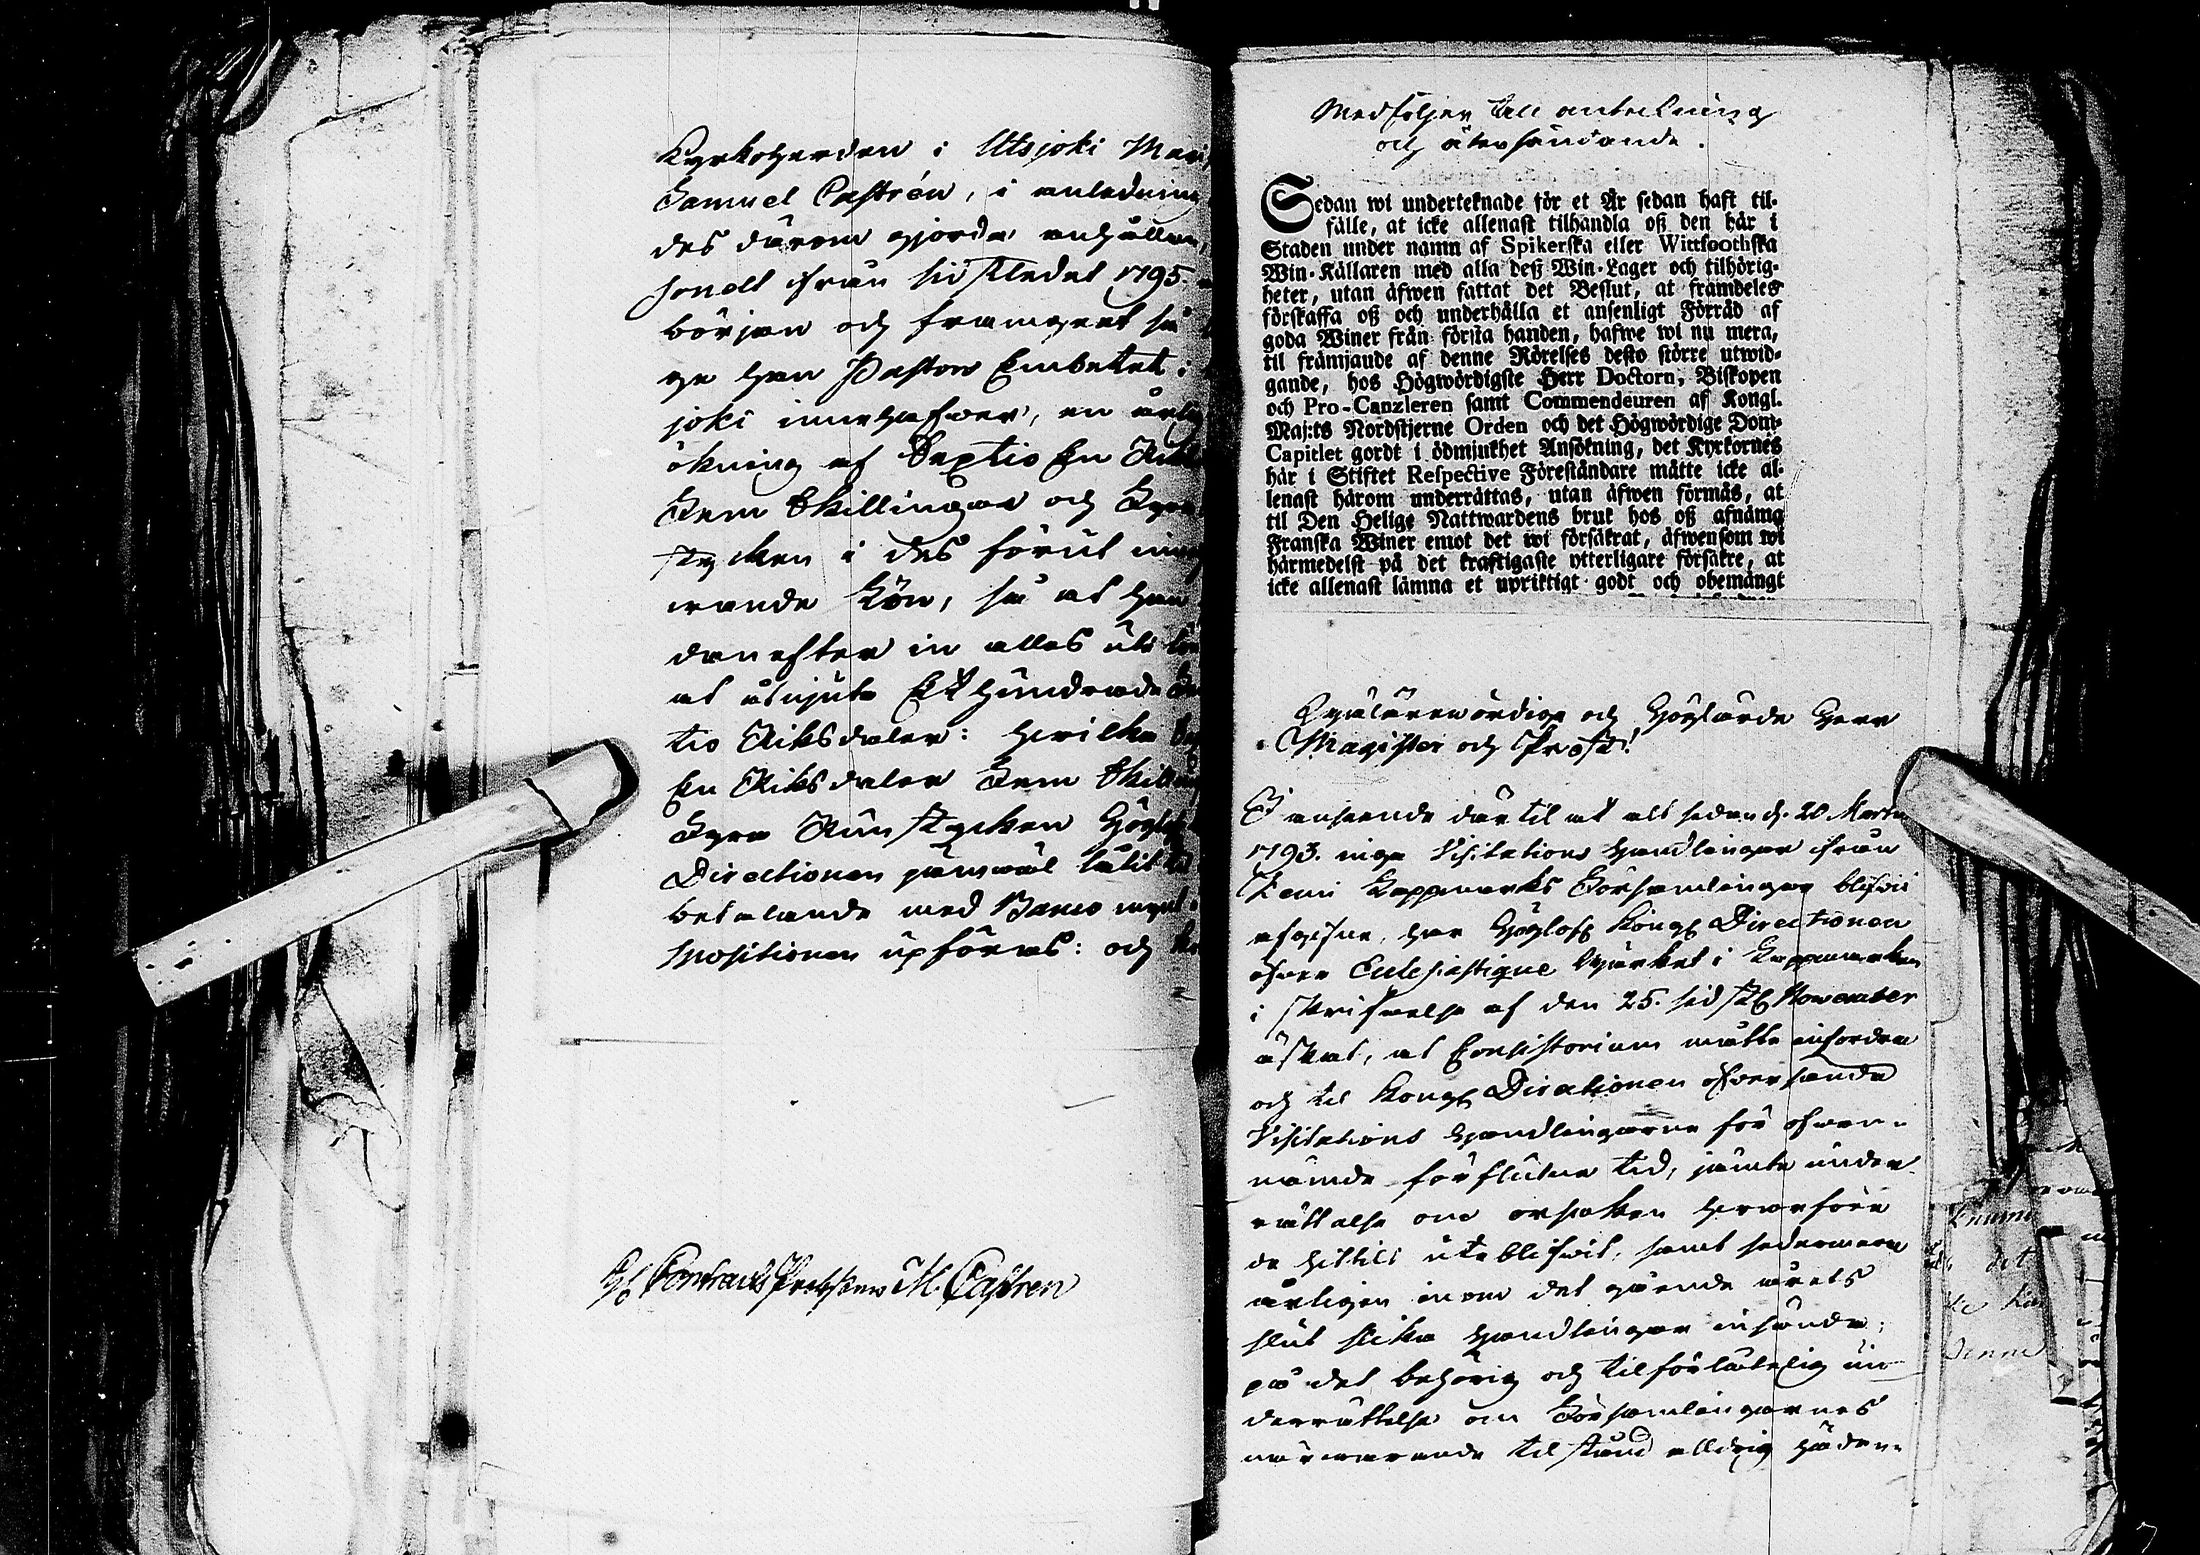 Kyrkoherden i Utsjoki Mag
Samuel Castrén, i anledning
des därom gjorda anhållan,
som ell ifrån sidstledet 1795
början och framgent så
ge han Pastors Embetet i
joki innehafver, en årlig
ökning af Septio En Riks
Fem Skillingar och Fyra
stycken i des förut
rande lön, så at han
derefter in alles uti lön
at åtnjuta Ett hundrade
tio Riksdaler: hvilka
En Riksdaler Fem Skill
Fyra Runstycken Högl
Directionen jämwäl låtit til
betalande med Banco
Mositionen upföras: och
H: Contracts Prosten M. Castren
Medföljer till antekning
och återsändande.
Sedan wi underteknade för et År sedan haft til-
fälle, at icke allenast tilhandla oß den här i
Staden under namn af Spikerska eller Wittfoothska
Win-Källaren med alla deß Win-Lager och tilhörig-
heter, utan äfwen fattat det Beslut, at framdeles
förskaffa oß och underhålla et ansenligt Förråd af
goda Winer från första handen, hafwe wi nu mera,
til främjande af denne Rörelses desto större utwid-
gande, hos Högwördigste Herr Doctorn, Biskopen
och Pro-Canzleren samt Commendeuren af Kongl.
Maj:ts Nordstjerne Orden och det Högwördige Dom-
Capitlet gordt i ödmjukhet Ansökning, det Kyrkornes
här i Stiftet Respective Föreståndare måtte icke al-
lenast härom underrättas, utan äfwen förmås, at
til Den Helige Nattwardens bruk hos oß afnämg
Franska Winer emot det wi försäkrat, äfwensom wi
härmedelst på det kraftigaste ytterligare försäkre, at
icke allenast lämna et upriktigt godt och obemängt
Wyälärewördige och Höglärde Herr
Magister och Prost!
I anseende därtil at alt sedan d. 20 Martii
1793. inga Visitations Handlingar ifrån
Kemi Lappmarks Församlingar blifwit
afgifne, har Höglofl Kongl Directionen
öfver Ecclesiastique Wärket i Lappmarken
i skrifwelse af den 25. sidstl November
äskat, at Consistorium måtte infordra
och til Kongl Directionen öfversända
Visitations Handlingarne för ofwan-
nämde förflutne tid, jämte under
rättelse om orsaken hvarföre
de hittils uteblifwit, samt sedermera
årligen inom det gående årets
slut slika Handlingar insända;
på det behörig och tilförlåtelig un-
derrättelse om Församlingarnes
närwarande tilstånd alldrig häden-
det
denne